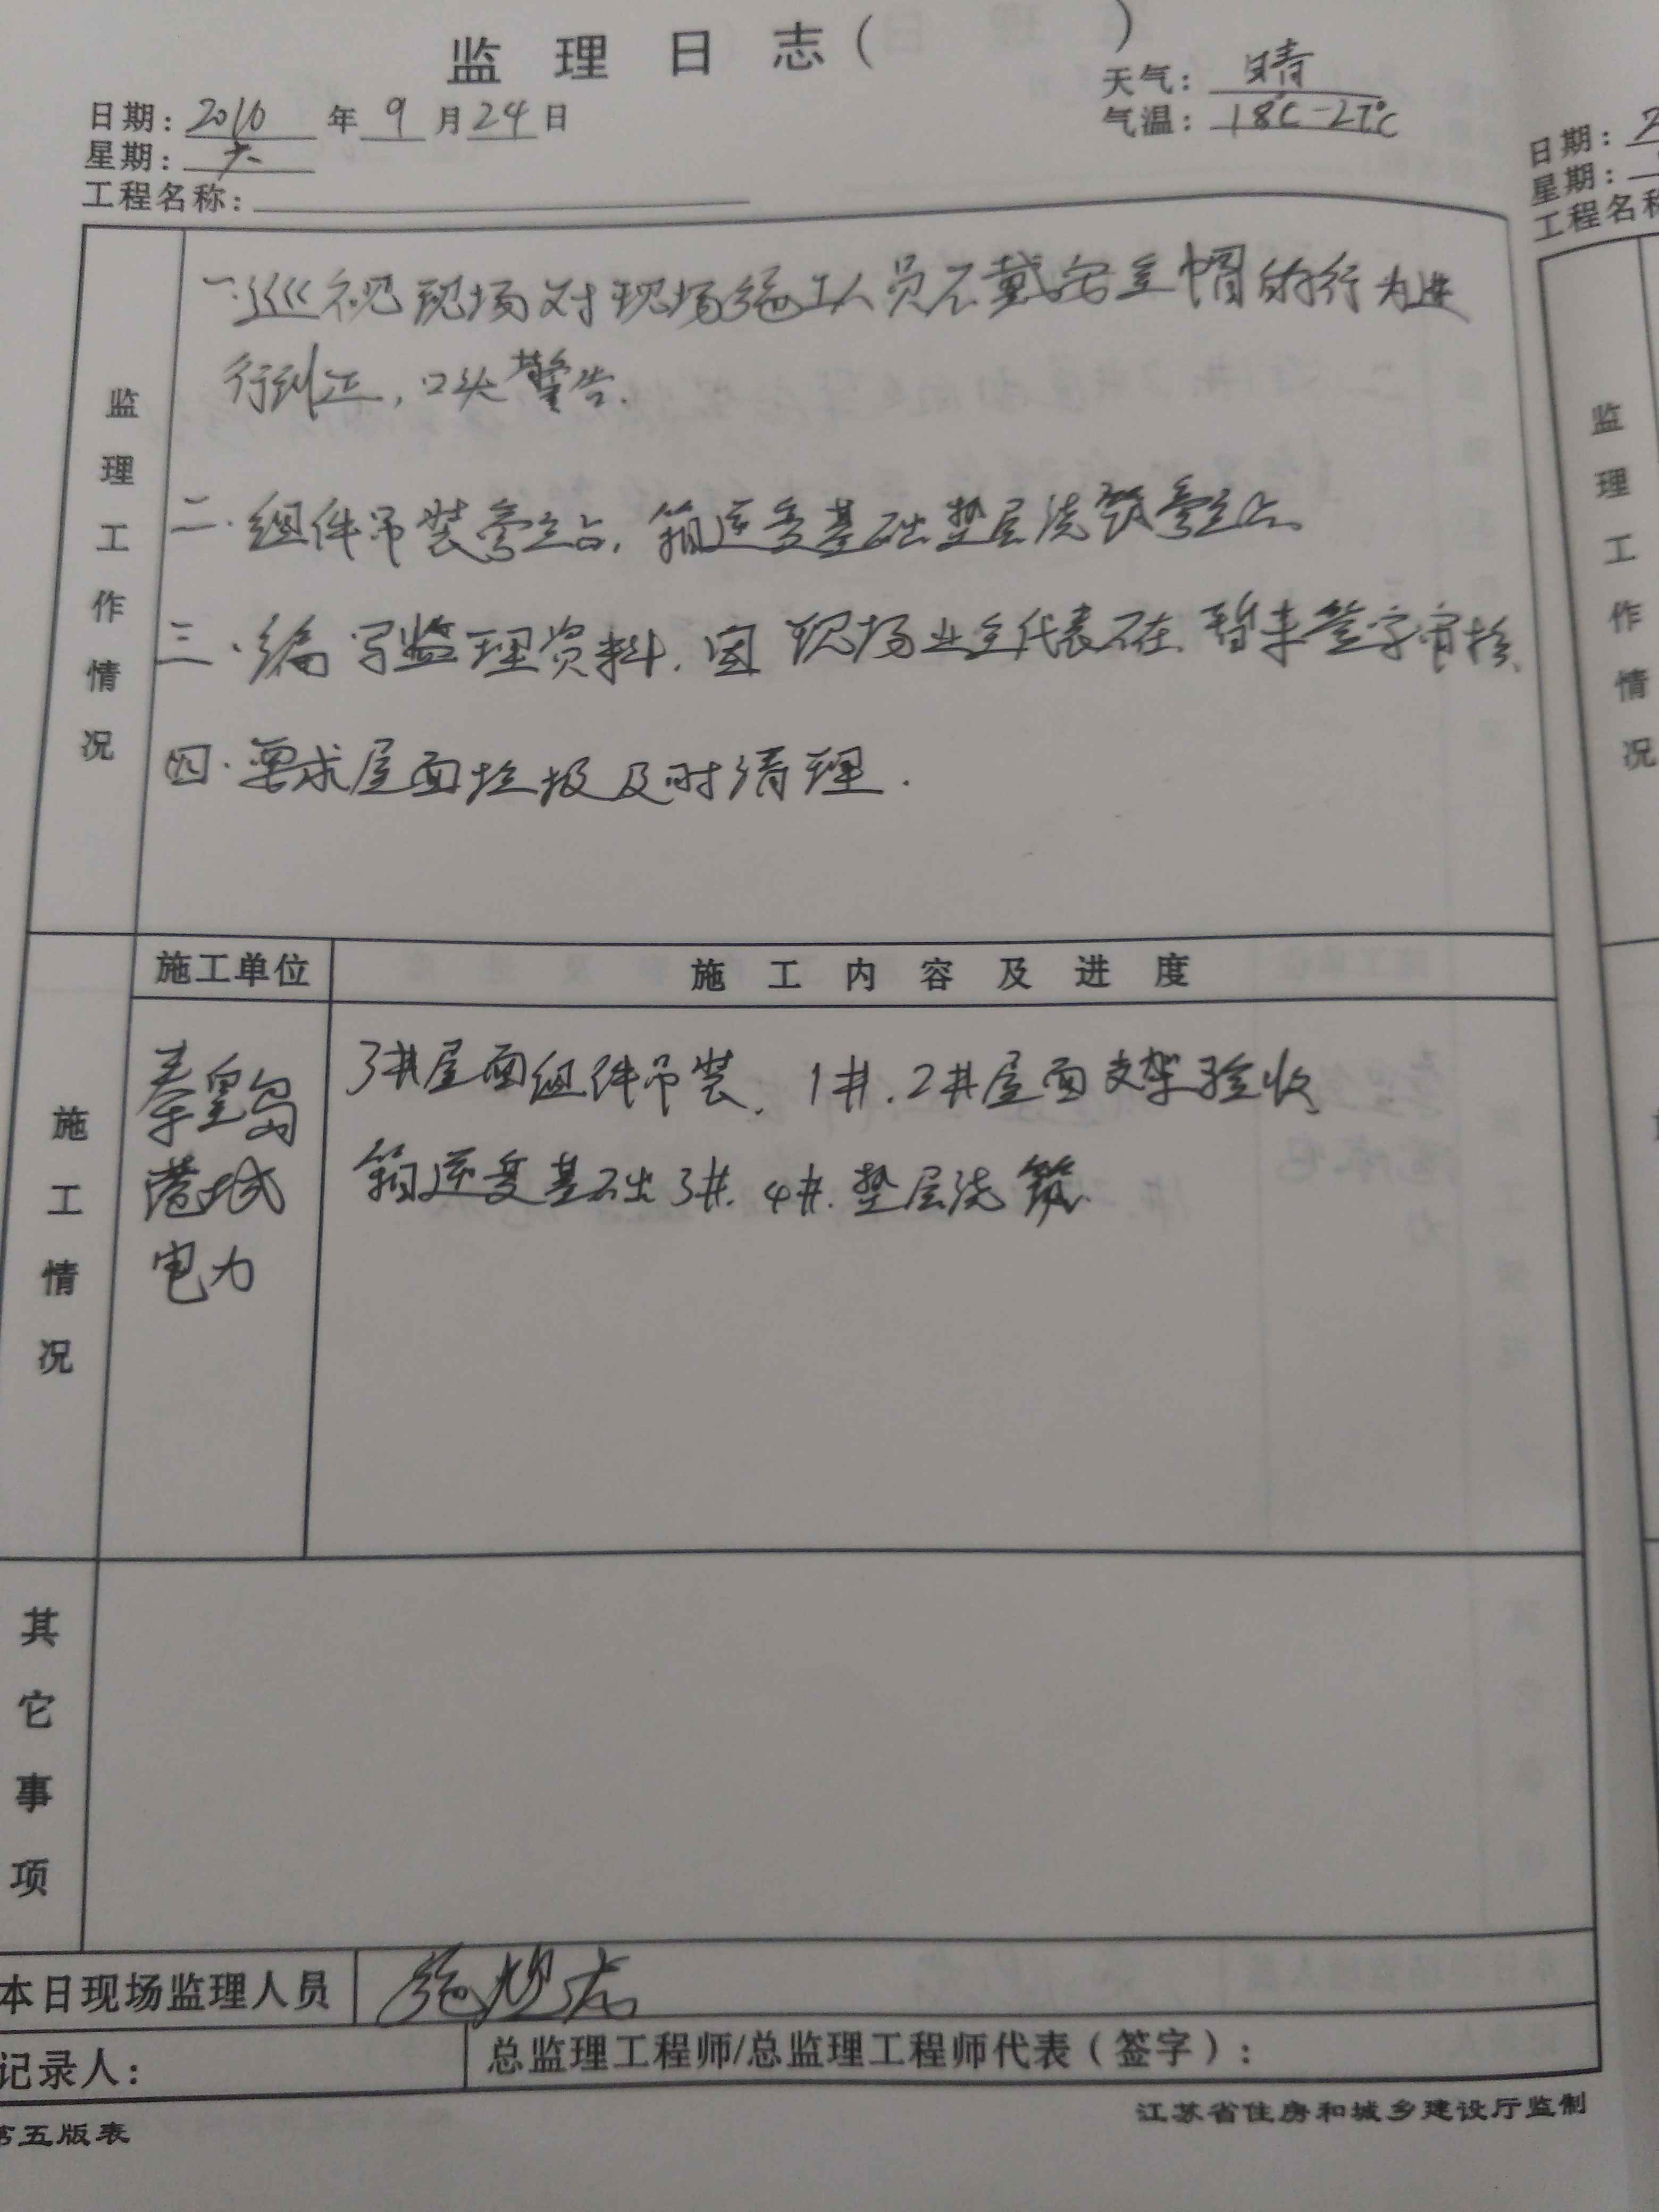 监理日志（ ）
天气：晴
日期：2016年9月24日
气温：18℃-27℃
星期：六
工程名称：
监理工作情况
一.巡视现场对现场施工人员不戴安全帽的行为进
行纠正，口头警告.
二.组件吊装旁站，箱逆变基础垫层浇筑旁站、
三.编写监理资料.因现场业主代表不在、暂未签字审核、
四.要求屋面垃圾及时清理.
施工单位
施工内容及进度
施工情况
秦皇岛
港城
电力
3#屋面组件吊装、1#.2#屋面支架验收
箱逆变基础3#.4#.垫层浇筑.
其它事项
本日现场监理人员
记录人：
总监理工程师/总监理工程师代表（签字）：
第五版表
江苏省住房和城乡建设厅监制
日期：2
星期：
工程名称
监理工作情况